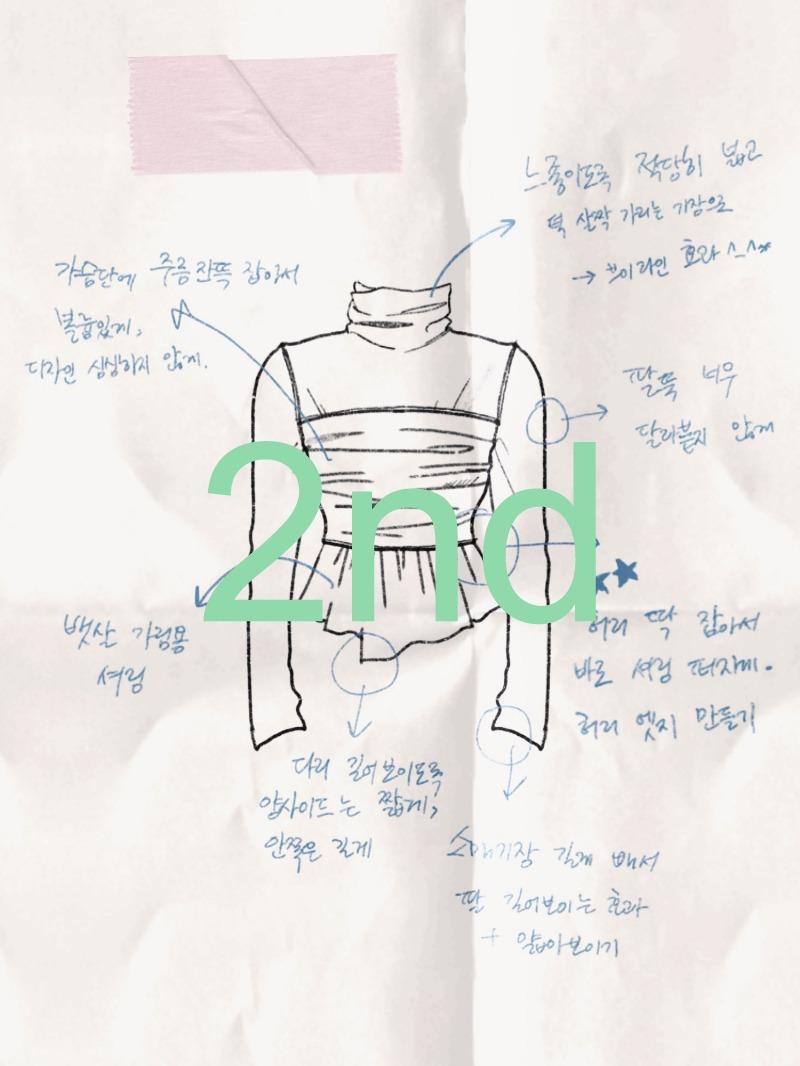 느좋이도록 적당히 넓고
턱 살짝 가리는 기장으로
→ 브이라인 효과 ^_^*
가슴단에 주름 잔뜩 잡아서
볼륨있게,
디자인 심심하지 않게.
팔뚝 너무
달라붙지 않게
2nd
뱃살 가림용
셔링
허리 딱 잡아서
바로 셔링 퍼지게.
허리 엣지 만들기
다리 길어보이도록
양사이드는 짧게,
안쪽은 길게
소매기장 길게 빼서
팔 길어보이는 효과
+ 얇아보이기